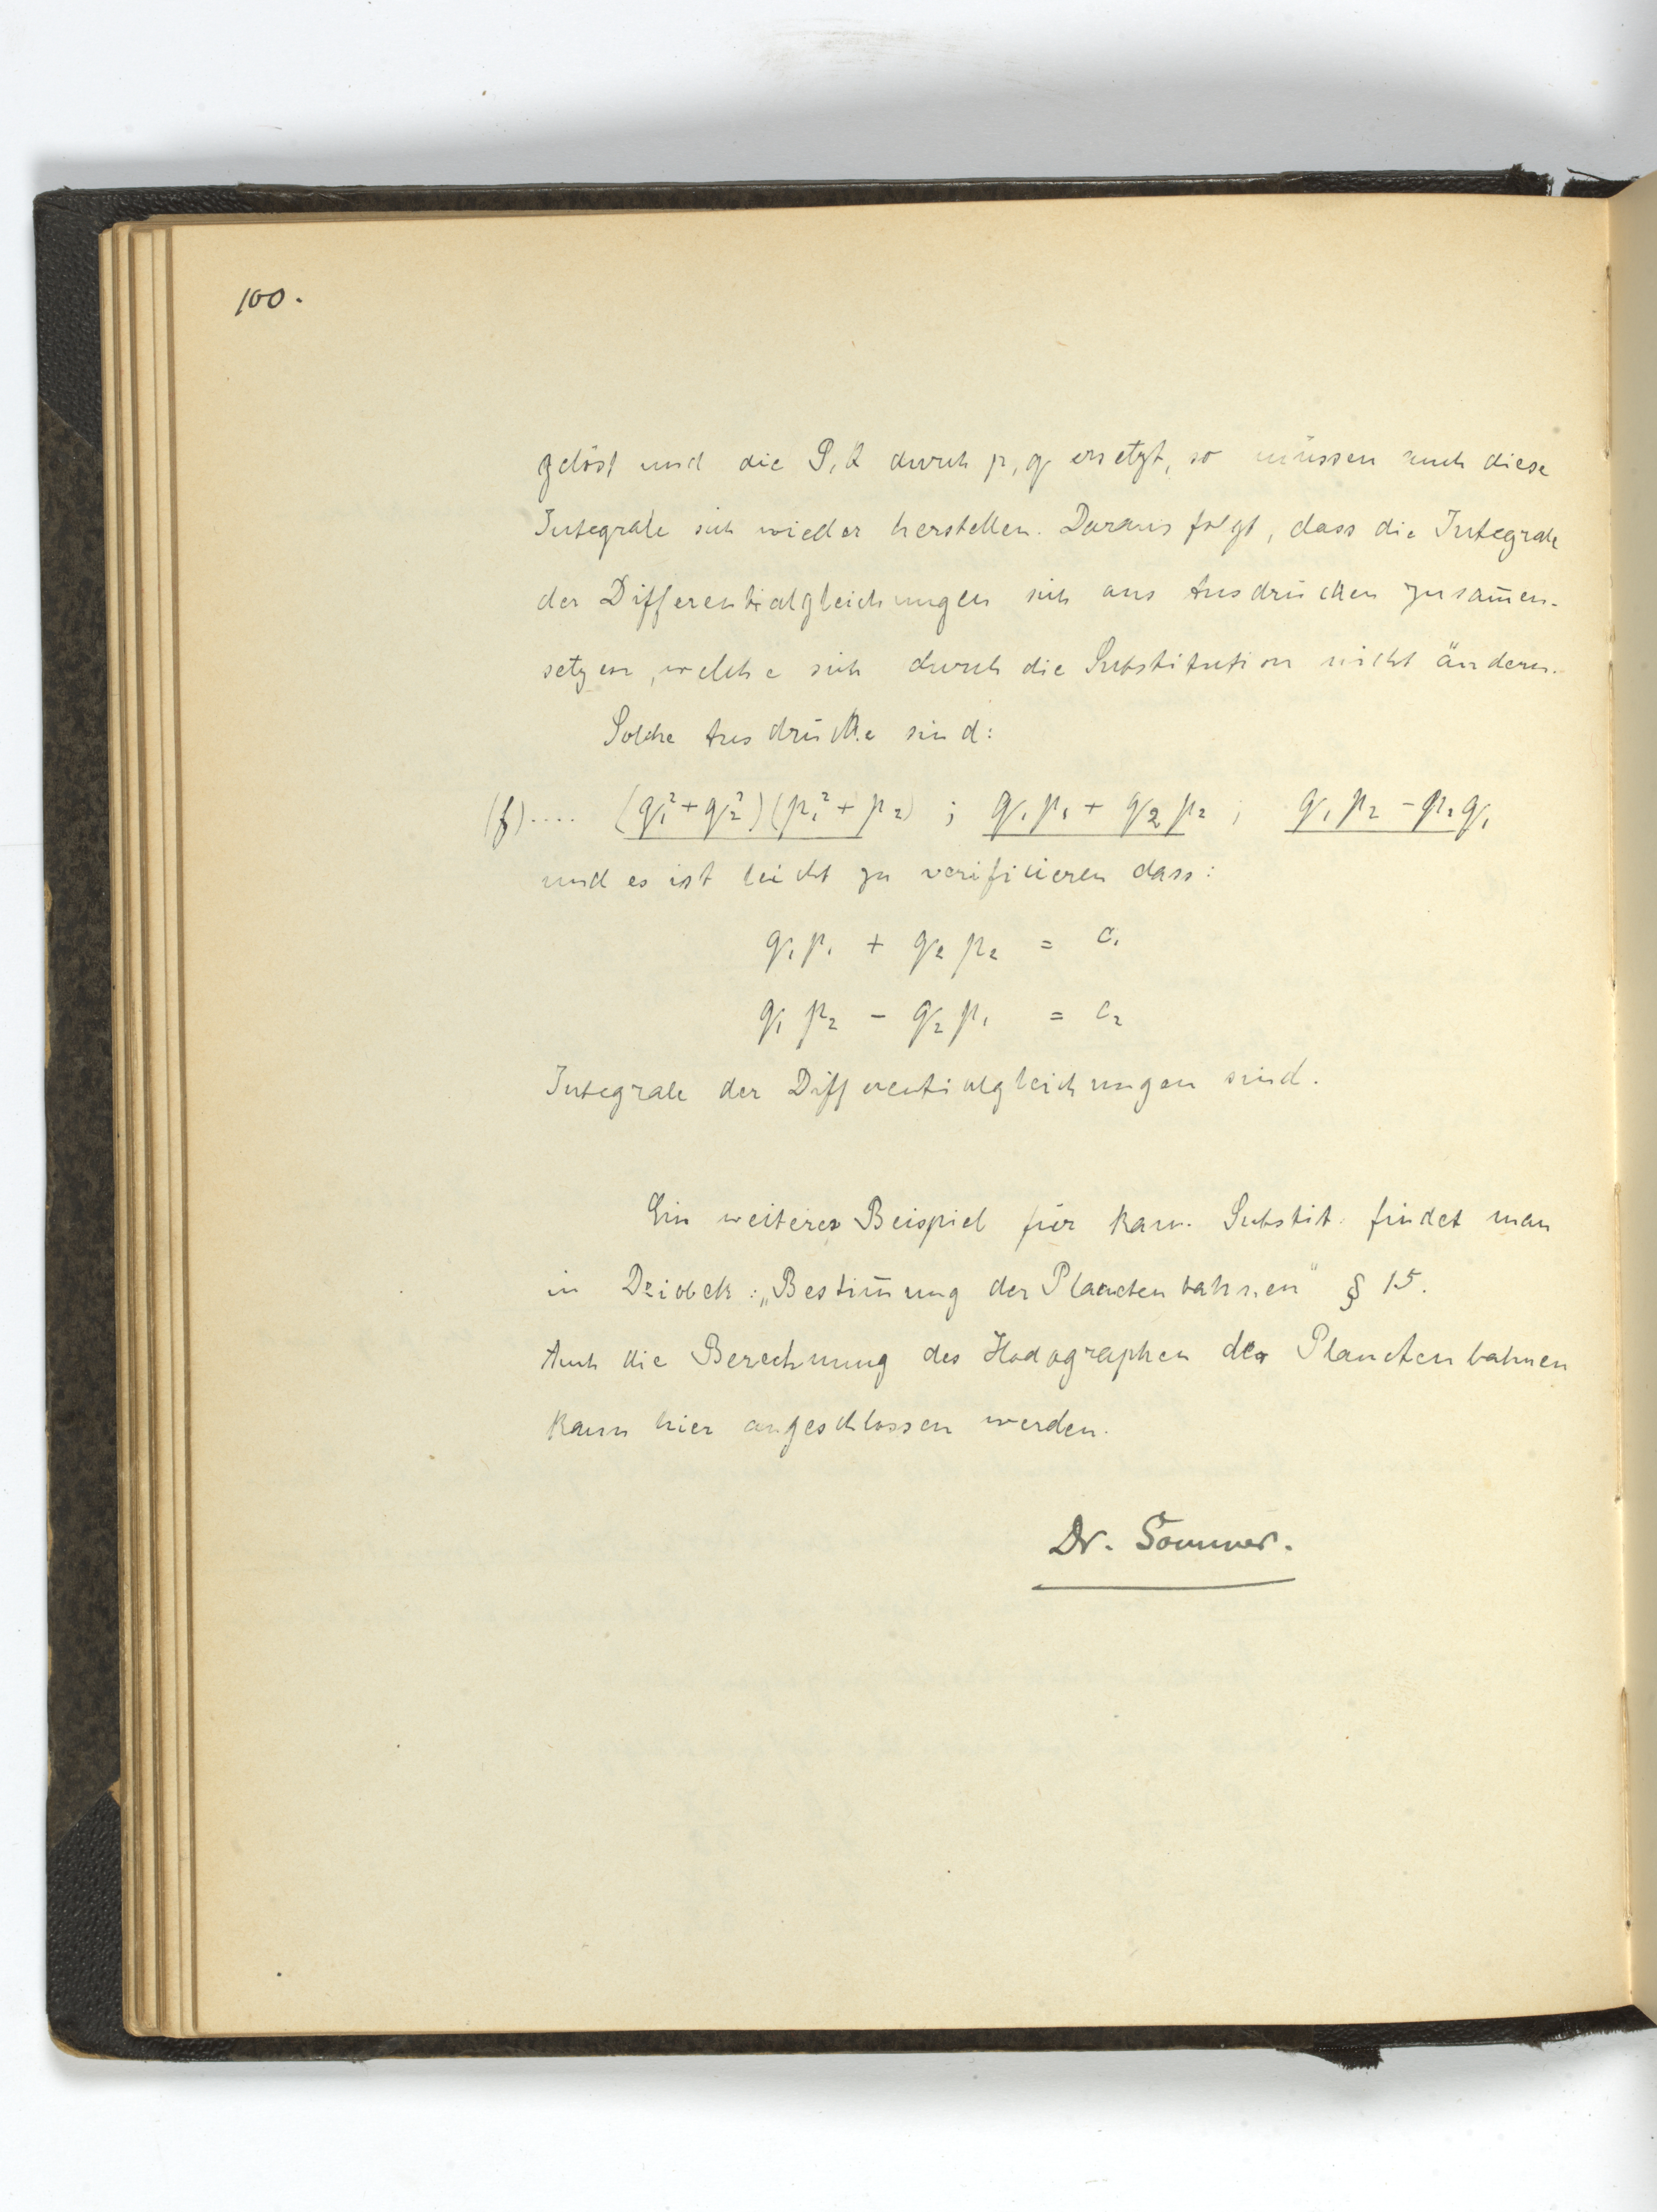 100.
gelöst und die P, Q durch p, q ersetzt, so müssen auch diese
Integrale sich wieder herstellen. Daraus folgt, dass die Integrale
der Differentialgleichungen sich aus Ausdrücken zusam̅en-
setzen, welche sich durch die Substitution nicht ändern.
Solche Ausdrücke sind:
(f).... (q₁²+q₂²)(p₁²+p₂) ; q₁p₁ + q₂p₂ ; q₁p₂ - p₂q₁
und es ist leicht zu verificieren dass:
q₁p₁ + q₂p₂ = c₁
q₁p₂ - q₂p₁ = c₂
Integrale der Differentialgleichungen sind.
Ein weiteres Beispiel für kan. Substit. findet man
in Dziobek: „Bestim̅ung der Planetenbahnen" § 15.
Auch die Berechnung des Hodographen der Planetenbahnen
kann hier angeschlossen werden.
Dr. Sommer.